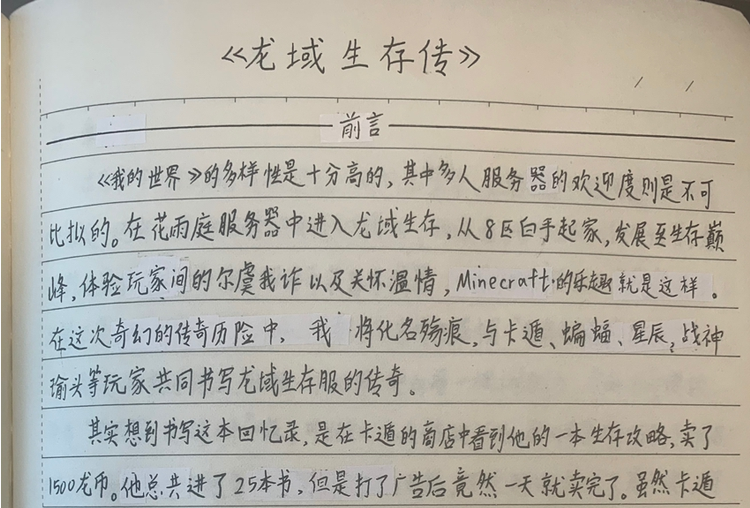 《龙域生存传》
前言
《我的世界》的多样性是十分高的，其中多人服务器的欢迎度则是不可
比拟的。在花雨庭服务器中进入龙域生存，从8区白手起家，发展至生存巅
峰，体验玩家间的尔虞我诈以及关怀温情，Minecraft的乐趣就是这样。
在这次奇幻的传奇历险中，我将化名殇痕，与卡遁、蝙蝠、星辰、战神
瑜头等玩家共同书写龙域生存服的传奇。
其实想到书写这本回忆录，是在卡遁的商店中看到他的一本生存攻略，卖了
1500龙币。他总共进了25本书，但是打了广告后竟然一天就卖完了。虽然卡遁